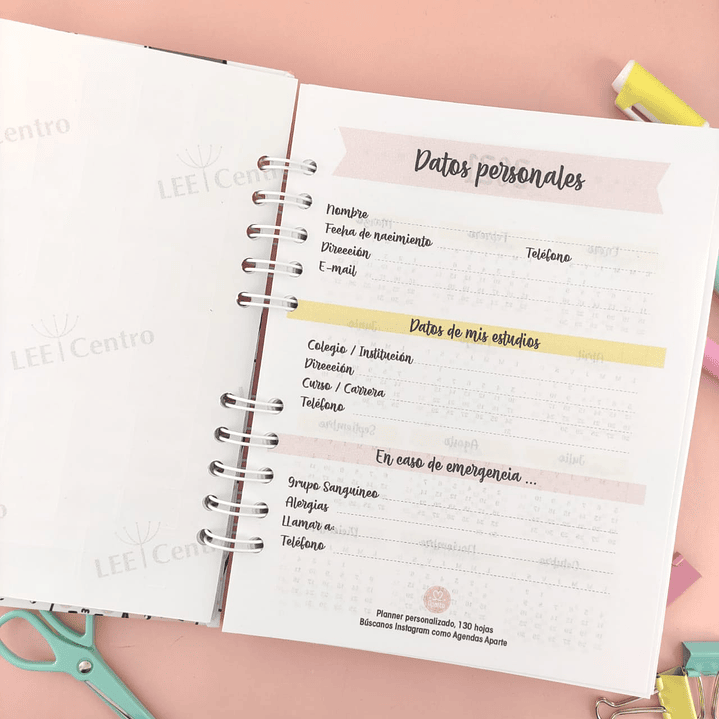 LEE | Centro
LEE | Centro
LEE | Centro
Centro
Datos personales
Nombre
Fecha de nacimiento
Dirección
Teléfono
E-mail
Datos de mis estudios
Colegio / Institución
Dirección
Curso / Carrera
Teléfono
En caso de emergencia ...
Grupo Sanguíneo
Alergias
Llamar a:
Teléfono
Planner personalizado, 130 hojas
Búscanos Instagram como Agendas Aparte